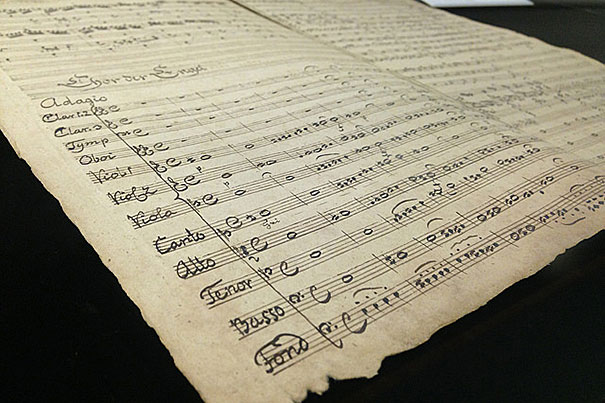 Chor der Engel
Adagio
Clar. 2
Clar.
Tymp
Oboi
Viol. 1
Viol. 2
Viola
Canto
Alto
Tenor
Basso
Fond